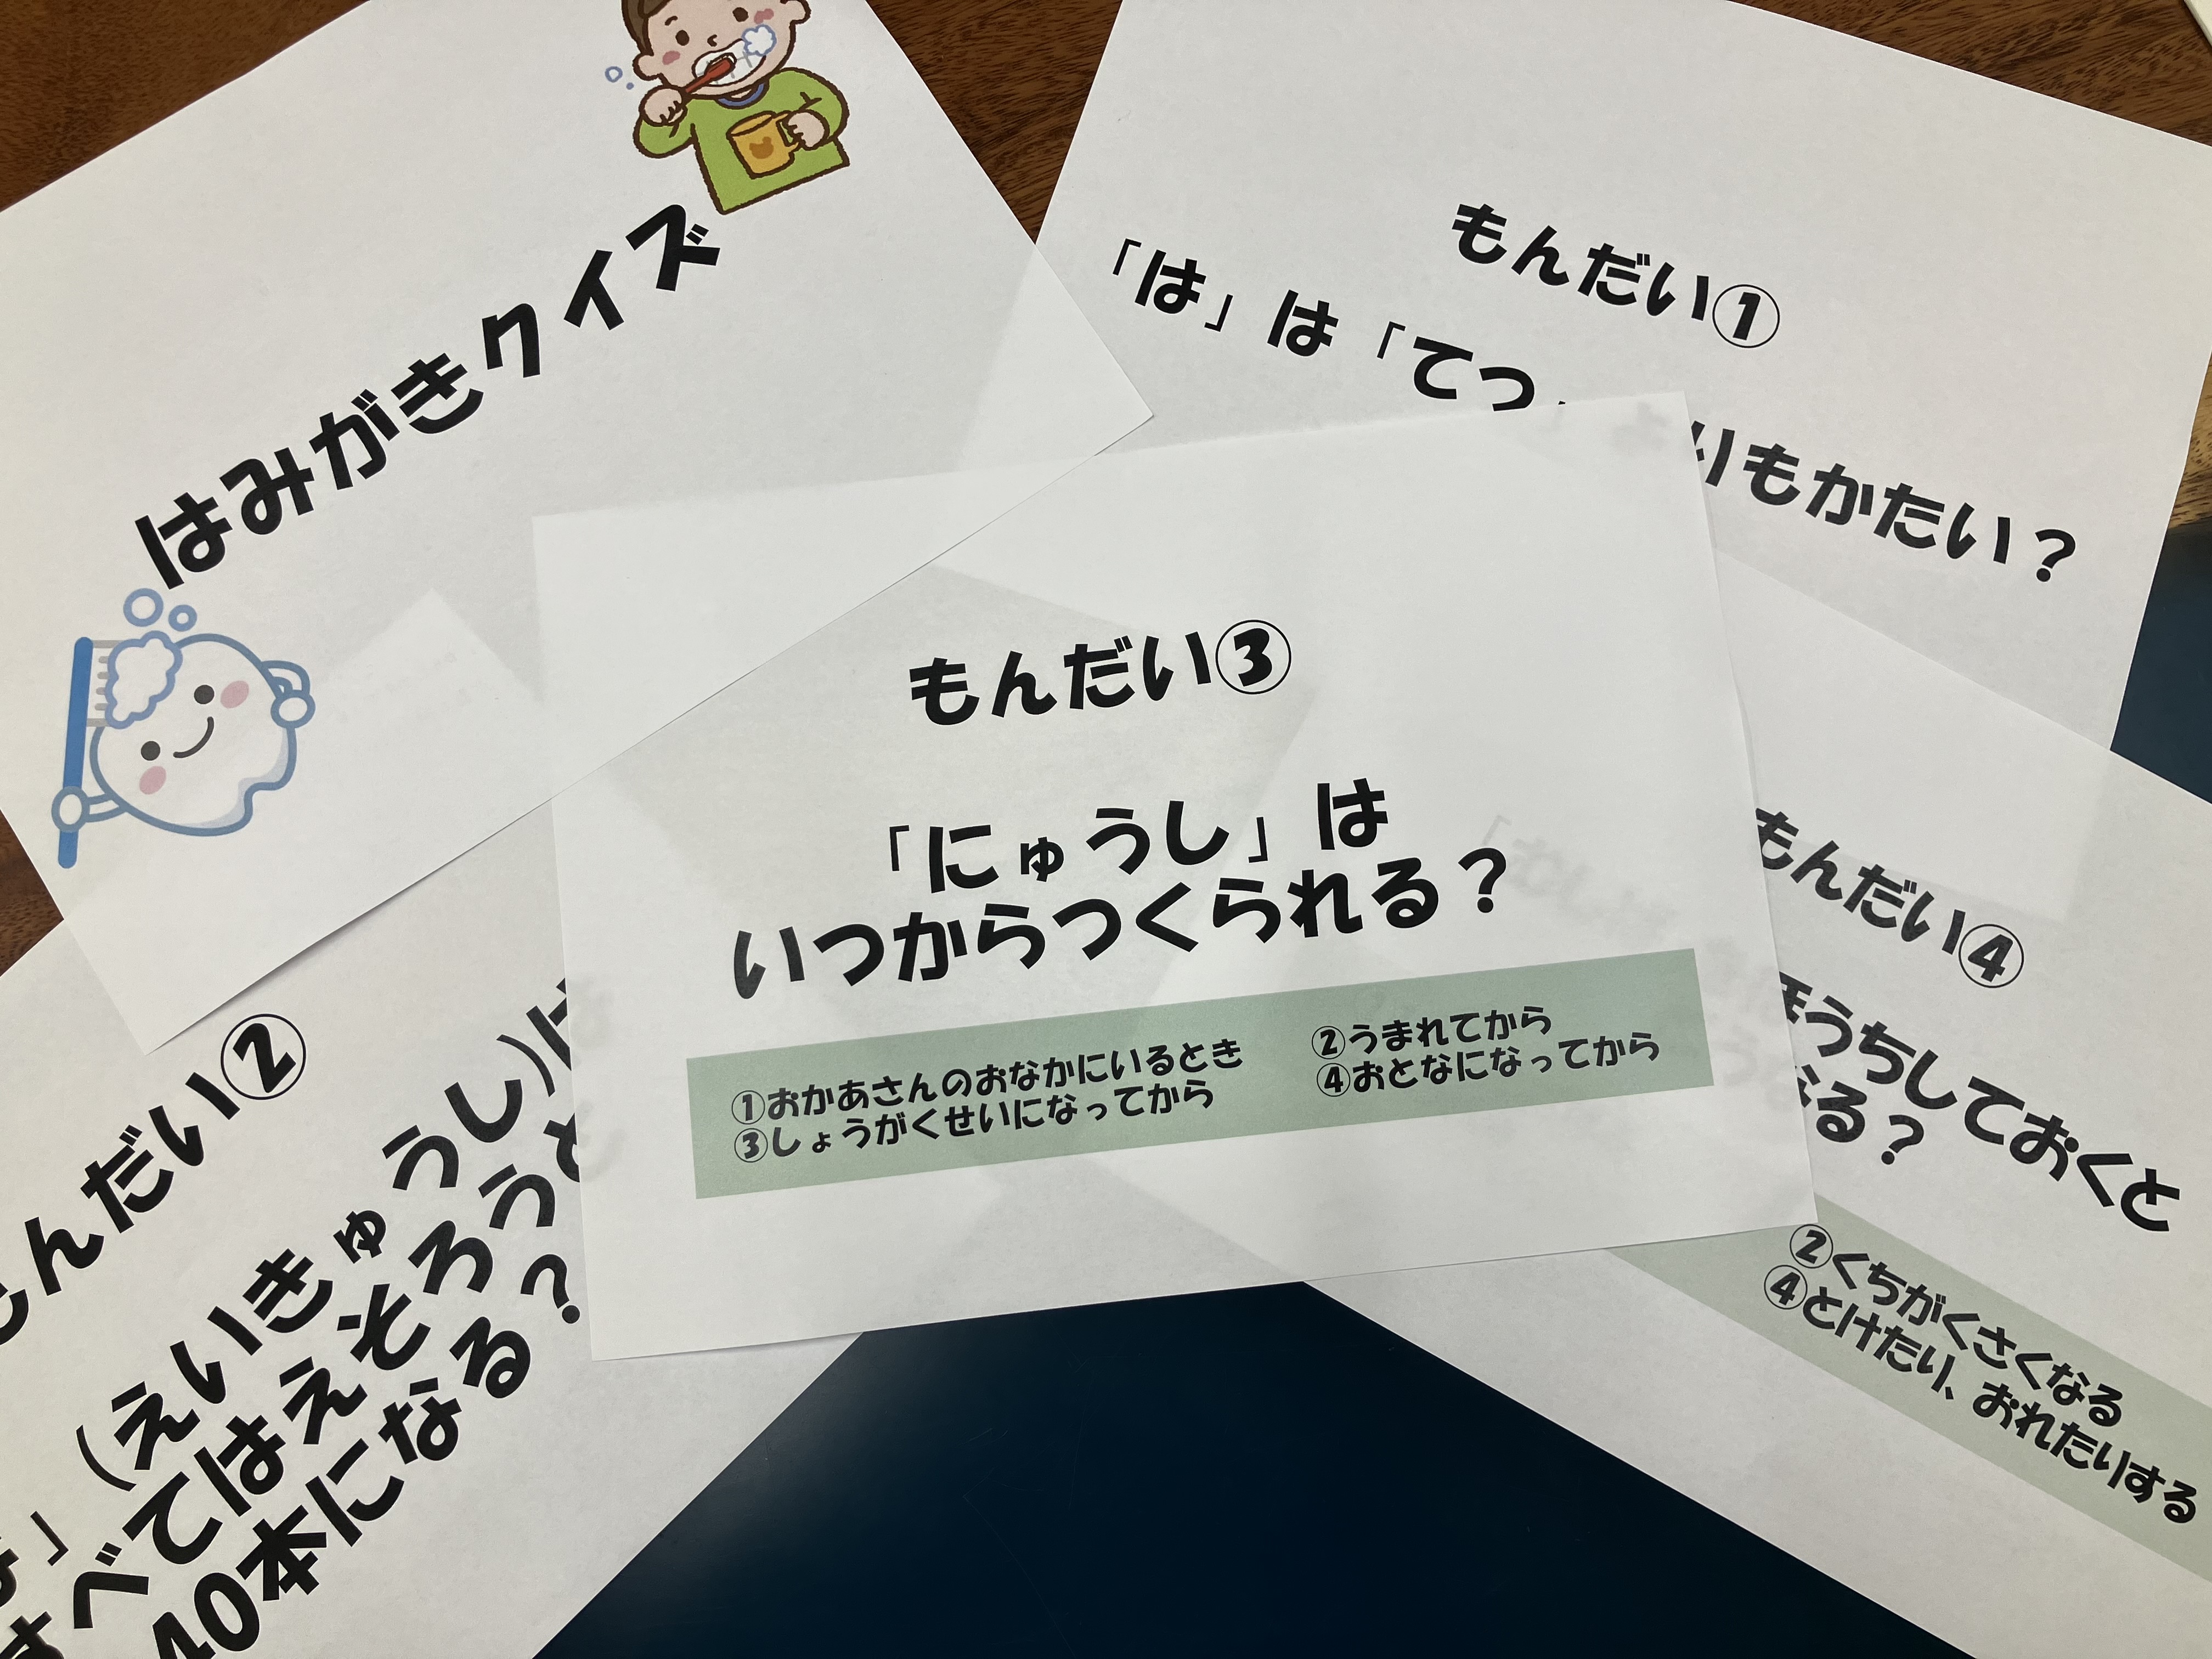 はみがきクイズ
もんだい①
「は」は「てつ」よりもかたい？
もんだい③
「にゅうし」は
いつからつくられる？
①おかあさんのおなかにいるとき ②うまれてから
③しょうがくせいになってから ④おとなになってから
もんだい②
」（えいきゅうし）は
すべてはえそろうと
40本になる？
もんだい④
ほうちしておくと
なる？
②くちがくさくなる
④とけたり、おれたりする